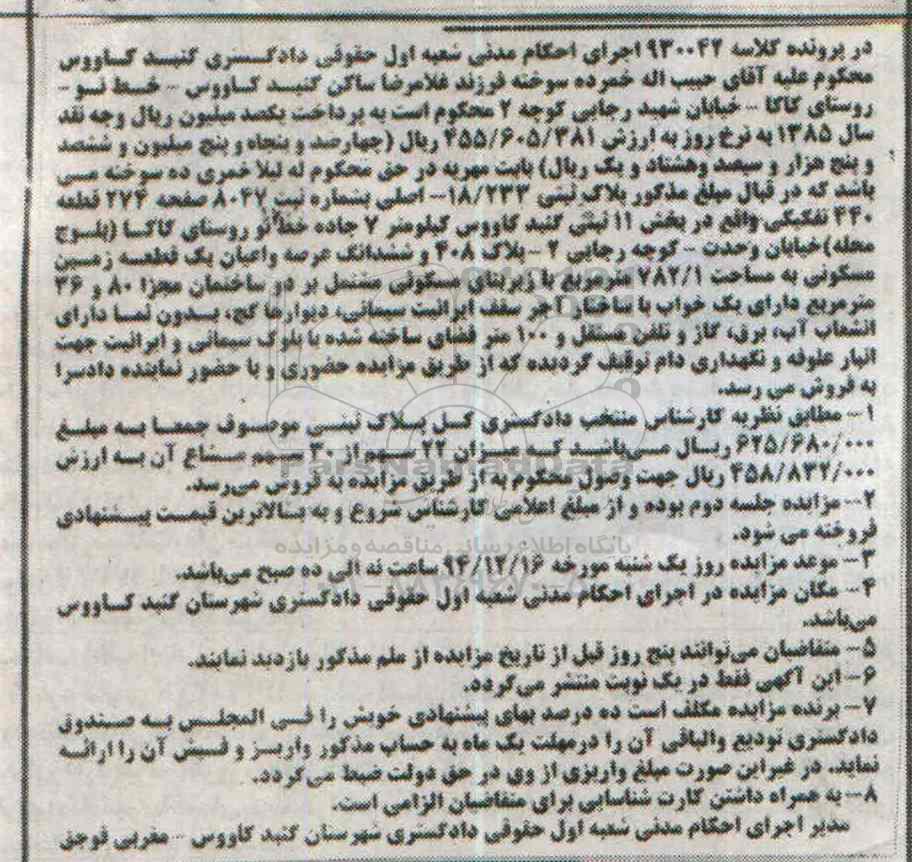 در پرونده کلاسه ۹۳۰۰۴۲ اجرای احکام مدنی شعبه اول حقوقی دادگستری گنبد کاووس
محکوم علیه آقای حبیب اله خمرده سوخته فرزند غلامرضا ساکن گنبد کاووس - خط نو -
روستای کاکا - خیابان شهید رجایی کوچه ۲ محکوم است به پرداخت یکصد میلیون ریال وجه نقد
سال ۱۳۸۵ به نرخ روز به ارزش ۴۵۵/۶۰۵/۳۸۱ ریال (چهارصد و پنجاه و پنج میلیون و ششصد
و پنج هزار و سیصد وهشتاد و یک ریال) بابت مهریه در حق محکوم له لیلا خمری ده سوخته می
باشد که در قبال مبلغ مذکور پلاک ثبتی ۱۸/۲۳۳- اصلی بشماره ثبت ۸۰۴۲ صفحه ۲۷۴ قطعه
۴۴۰ تفکیکی واقع در بخش ۱۱ ثبتی گنبد کاووس کیلومتر ۷ جاده خط نو روستای کاکا (بلوچ
محله)خیابان وحدت - کوچه رجایی ۲ - پلاک ۴۰۸ و ششدانگ عرصه واعیان یک قطعه زمین
مسکونی به مساحت ۷۸۲/۱ مترمربع با زیربنای مسکونی مشتمل بر دو ساختمان مجزا ۸۰ و ۳۶
مترمربع دارای یک خواب با ساختار آجر سقف ایرانیت سیمانی، دیوارها گچ، بدون نما دارای
انشعاب آب، برق، گاز و تلفن مستقل و ۱۰۰ متر فضای ساخته شده با بلوک سیمانی و ایرانیت جهت
انبار علوفه و نگهداری دام توقیف گردیده که از طریق مزایده حضوری و با حضور نماینده دادسرا
به فروش می رسد.
۱- مطابق نظریه کارشناس منتخب دادگستری کل پلاک ثبتی موصوف جمعا به مبلغ
۶۲۵/۶۸۰/۰۰۰ ریال می‌باشد که میزان ۲۲ سهم از ۳۰ سهم مشاع آن به ارزش
۴۵۸/۸۳۲/۰۰۰ ریال جهت وصول محکوم به از طریق مزایده به فروش می‌رسد.
۲- مزایده جلسه دوم بوده و از مبلغ اعلامی کارشناس شروع و به بالاترین قیمت پیشنهادی
فروخته می شود.
۳- موعد مزایده روز یک شنبه مورخه ۹۴/۱۲/۱۶ ساعت نه الی ده صبح می‌باشد.
۴- مکان مزایده در اجرای احکام مدنی شعبه اول حقوقی دادگستری شهرستان گنبد کاووس
می‌باشد.
۵- متقاضیان می‌توانند پنج روز قبل از تاریخ مزایده از ملم مذکور بازدید نمایند.
۶- این آگهی فقط در یک نوبت منتشر می‌گردد.
۷- برنده مزایده مکلف است ده درصد بهای پیشنهادی خویش را فی المجلس به صندوق
دادگستری تودیع والباقی آن را درمهلت یک ماه به حساب مذکور واریز و فیش آن را ارائه
نماید، در غیراین صورت مبلغ واریزی از وی در حق دولت ضبط می‌گردد.
۸- به همراه داشتن کارت شناسایی برای متقاضیان الزامی است.
مدیر اجرای احکام مدنی شعبه اول حقوقی دادگستری شهرستان گنبد کاووس - مغربی قوجق
ParsNamadData
پایگاه اطلاع رسانی مناقصه و مزایده